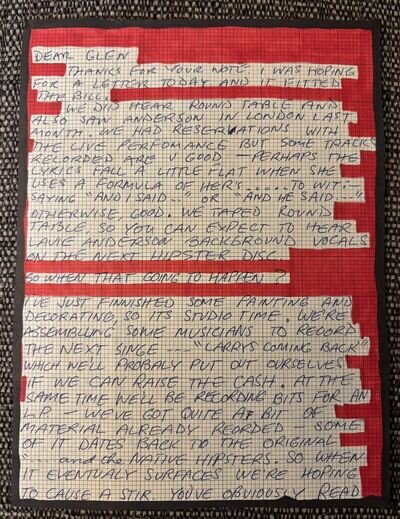 DEAR GLEN
THANKS FOR YOUR NOTE I WAS HOPING
FOR A LETTER TODAY AND IT FITTED
THE BILL.
WE DID HEAR ROUND TABLE AND
ALSO SAW ANDERSON IN LONDON LAST
MONTH. WE HAD RESERVATIONS WITH
THE LIVE PERFOMANCE BUT SOME TRACKS
RECORDED ARE V GOOD – PERHAPS THE
LYRICS FALL A LITTLE FLAT WHEN SHE
USES A FORMULA OF HERS..... TO WIT:-
SAYING "AND I SAID..." OR "AND HE SAID..."
OTHERWISE, GOOD. WE TAPED ROUND
TABLE, SO YOU CAN EXPECT TO HEAR
LAVIE ANDERSON BACKGROUND VOCALS
ON THE NEXT HIPSTER DISC.
SO WHEN THAT GOING TO HAPPEN?
I'VE JUST FINNISHED SOME PAINTING AND
DECORATING, SO ITS STUDIO TIME. WE'RE
ASSEMBLING SOME MUSICIANS TO RECORD
THE NEXT SINGE --- "LARRYS COMING BACK"
WHICH WE'LL PROBALY PUT OUT OURSELVES
IF WE CAN RAISE THE CASH. AT THE
SAME TIME WE'LL BE RECORDING BITS FOR AN
L.P. – WE'VE GOT QUITE A BIT OF
MATERIAL ALREADY REORDED – SOME
OF IT DATES BACK TO THE ORIGINAL
" and the NATIVE HIPSTERS. SO WHEN
IT EVENTUALY SURFACES WE'RE HOPING
TO CAUSE A STIR. YOU'VE OBVIOUSLY READ